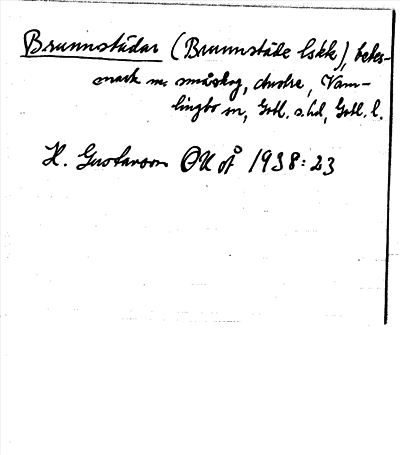 Brunnstädar (Brunnstäde lskk), betes-
mark m. småskog, Vam-
lingbo sn, Gotl. s. hd, Gotl. l.
H. Gustavson OUÅ 1938: 23